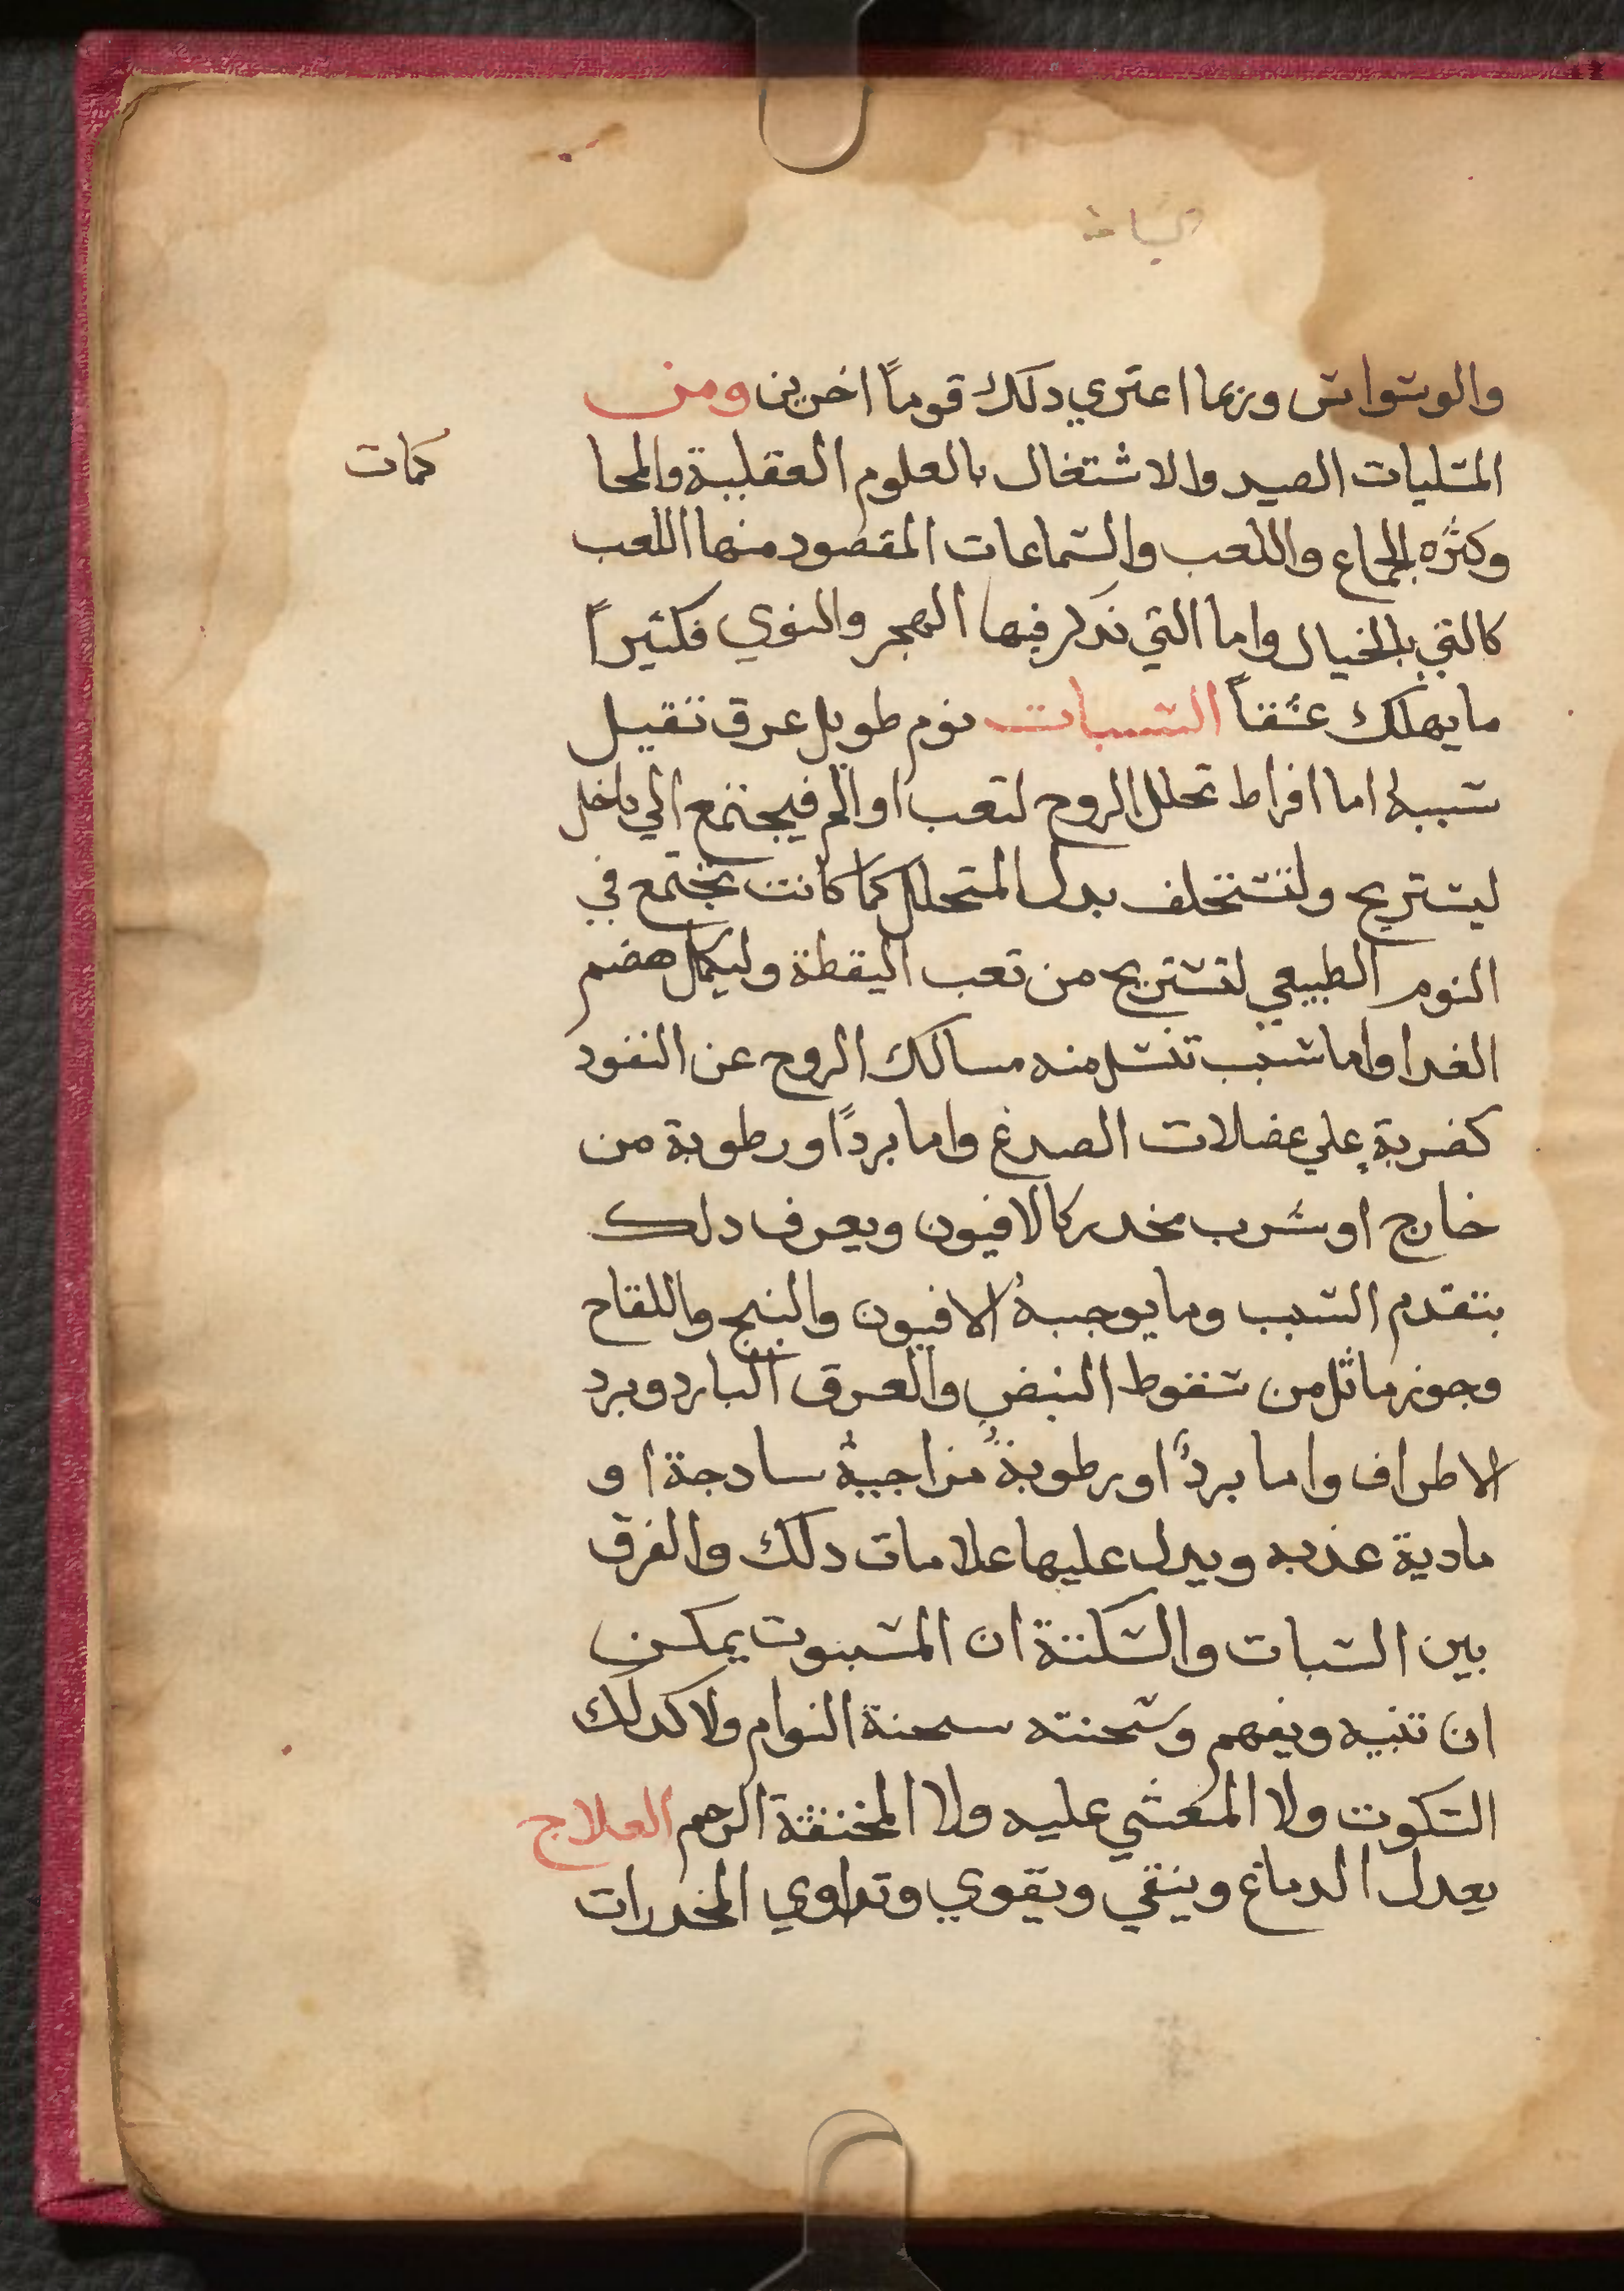 السبات
والوسواس وربما اعتري دلك قوماً اخرين ومن
المسليات الصيد والاشتغال بالعلوم العقلية والمحا
كمات
وكثره الجماع واللعب والسماعات المقصود منها اللعب
كالتي بالخيال واما التي نذكر فيها الهجر والنوي فكثيراً
ما يهلك عشقاً السبات نوم طويل عرق تقيل
سببه اما افراط تحلل الروح لتعب او الم فيجتمع الي داخل
ليستريح ولتستخلف بدل المتحلل كما كانت تجتمع في
النوم الطبيعي لتستريح من تعب اليقظة وليكمل هضم
الغدا واما سبب تنسد منه مسالك الروح عن النفود
كضربة علي عضلات الصدغ واما برداً او رطوبة من
خارج او شرب مخدر كالافيون ويعرف دلك
بتقدم السبب وما يوجبه الافيون والبنج واللقاح
وجوز ماثل من سقوط النبض والعرق البارد وبرد
الاطراف واما بردٌ او رطوبةٌ مزاجيةٌ سادجة او
مادية عذبه ويدل عليها علامات دلك والفرق
بين السبات والسكتة ان المسبوت يمكن
ان تنبيه ويفهم وسحنته سحنة النوام ولا كدلك
السكوت ولا المغشي عليه ولا المختنقة الرحم العلاج
يعدل الدماغ وينقي ويقوي وتداوي المخدرات